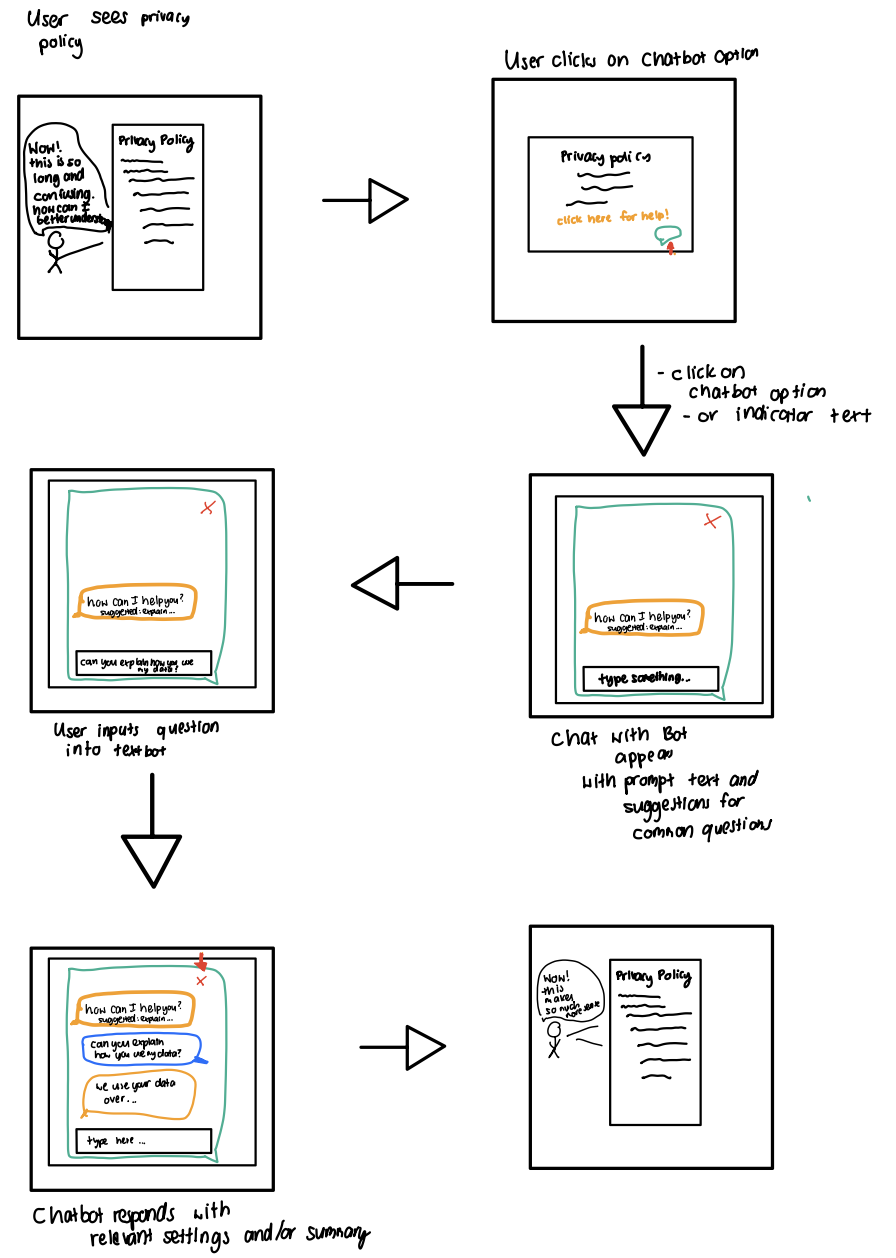 User sees privacy
policy
Wow!
this is so
long and
confusing.
how can I
better understand
Privacy Policy
User clicks on Chatbot option
Privacy policy
click here for help!
- click on
chatbot option
- or indicator text
how can I help you?
suggested: explain ...
type something...
Chat with Bot
appears
with prompt text and
suggestions for
common questions
how can I help you?
suggested: explain ...
can you explain how you use
my data?
User inputs question
into textbot
how can I help you?
suggested: explain ...
can you explain
how you use my data?
we use your data
over ...
type here ...
Chatbot responds with
relevant settings and/or summary
Wow!
this
makes
so much
more sense
Privacy Policy